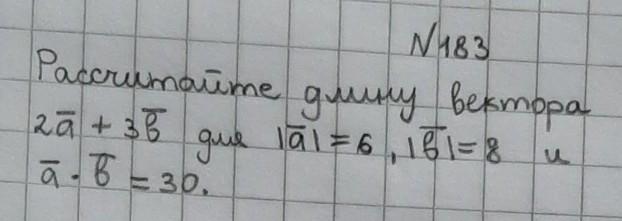 N183
Рассчитайте длину вектора
2a̅ + 3b̅ для |a̅| = 6, |b̅| = 8 и
a̅ · b̅ = 30.